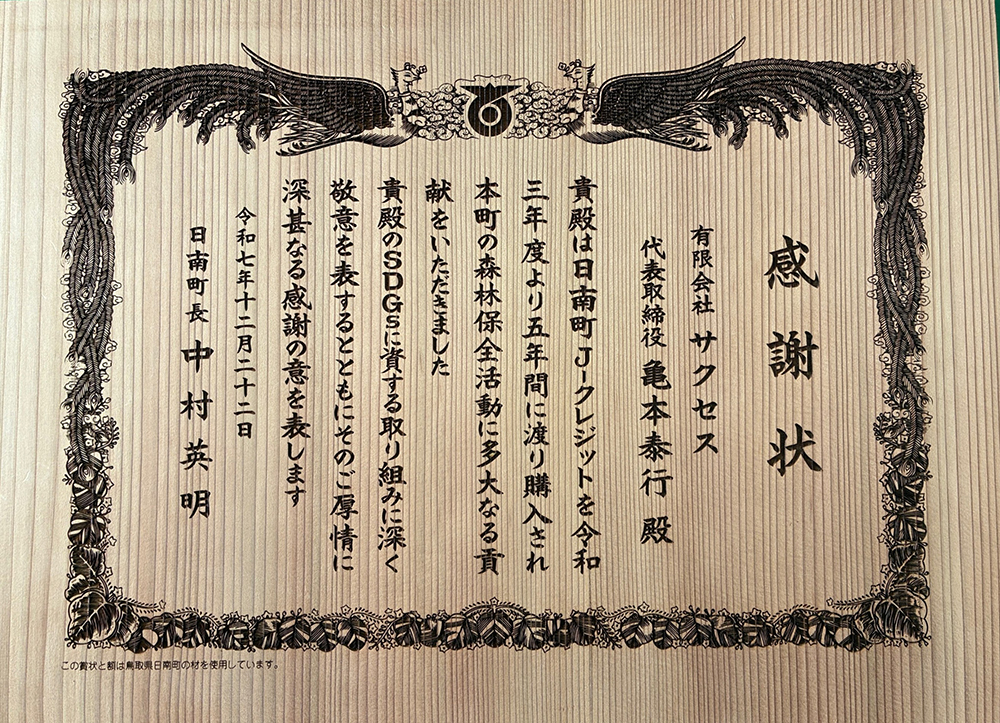 感謝状
有限会社 サクセス
代表取締役 亀本泰行 殿
貴殿は日南町J-クレジットを令和
三年度より五年間に渡り購入され
本町の森林保全活動に多大なる貢
献をいただきました
貴殿のSDGsに資する取り組みに深く
敬意を表するとともにそのご厚情に
深甚なる感謝の意を表します
令和七年十二月二十二日
日南町長 中村英明
この賞状と額は鳥取県日南町の材を使用しています。